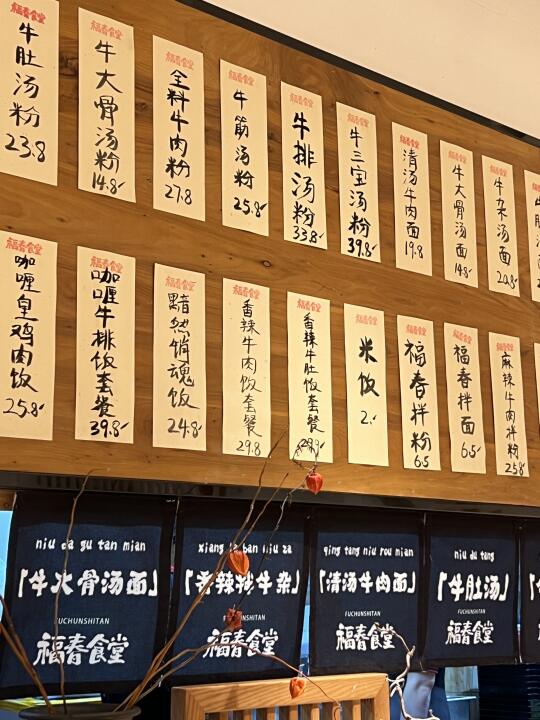 福春食堂
牛肚汤粉
23.8
福春食堂
牛大骨汤粉
14.8
福春食堂
全料牛肉粉
27.8
福春食堂
牛筋汤粉
25.8
福春食堂
牛排汤粉
33.8
福春食堂
牛三宝汤粉
39.8
福春食堂
清汤牛肉面
19.8
福春食堂
牛大骨汤面
14.8
福春食堂
牛杂汤面
20.8
福春食堂
咖喱皇鸡肉饭
25.8
福春食堂
咖喱牛排饭套餐
39.8
福春食堂
黯然销魂饭
24.8
福春食堂
香辣牛肉饭套餐
29.8
福春食堂
香辣牛肚饭套餐
福春食堂
米饭
2.-
福春食堂
福春拌粉
6.5
福春食堂
福春拌面
6.5
福春食堂
麻辣牛肉拌粉
25.8
niu da gu tan mian
「牛大骨汤面」
FUCHUNSHITAN
福春食堂
「香辣抄牛杂」
FUCHUNSHITAN
福春食堂
qing tang niu rou mian
「清汤牛肉面」
FUCHUNSHITAN
福春食堂
niu du tang
「牛肚汤」
FUCHUNSHITAN
福春食堂